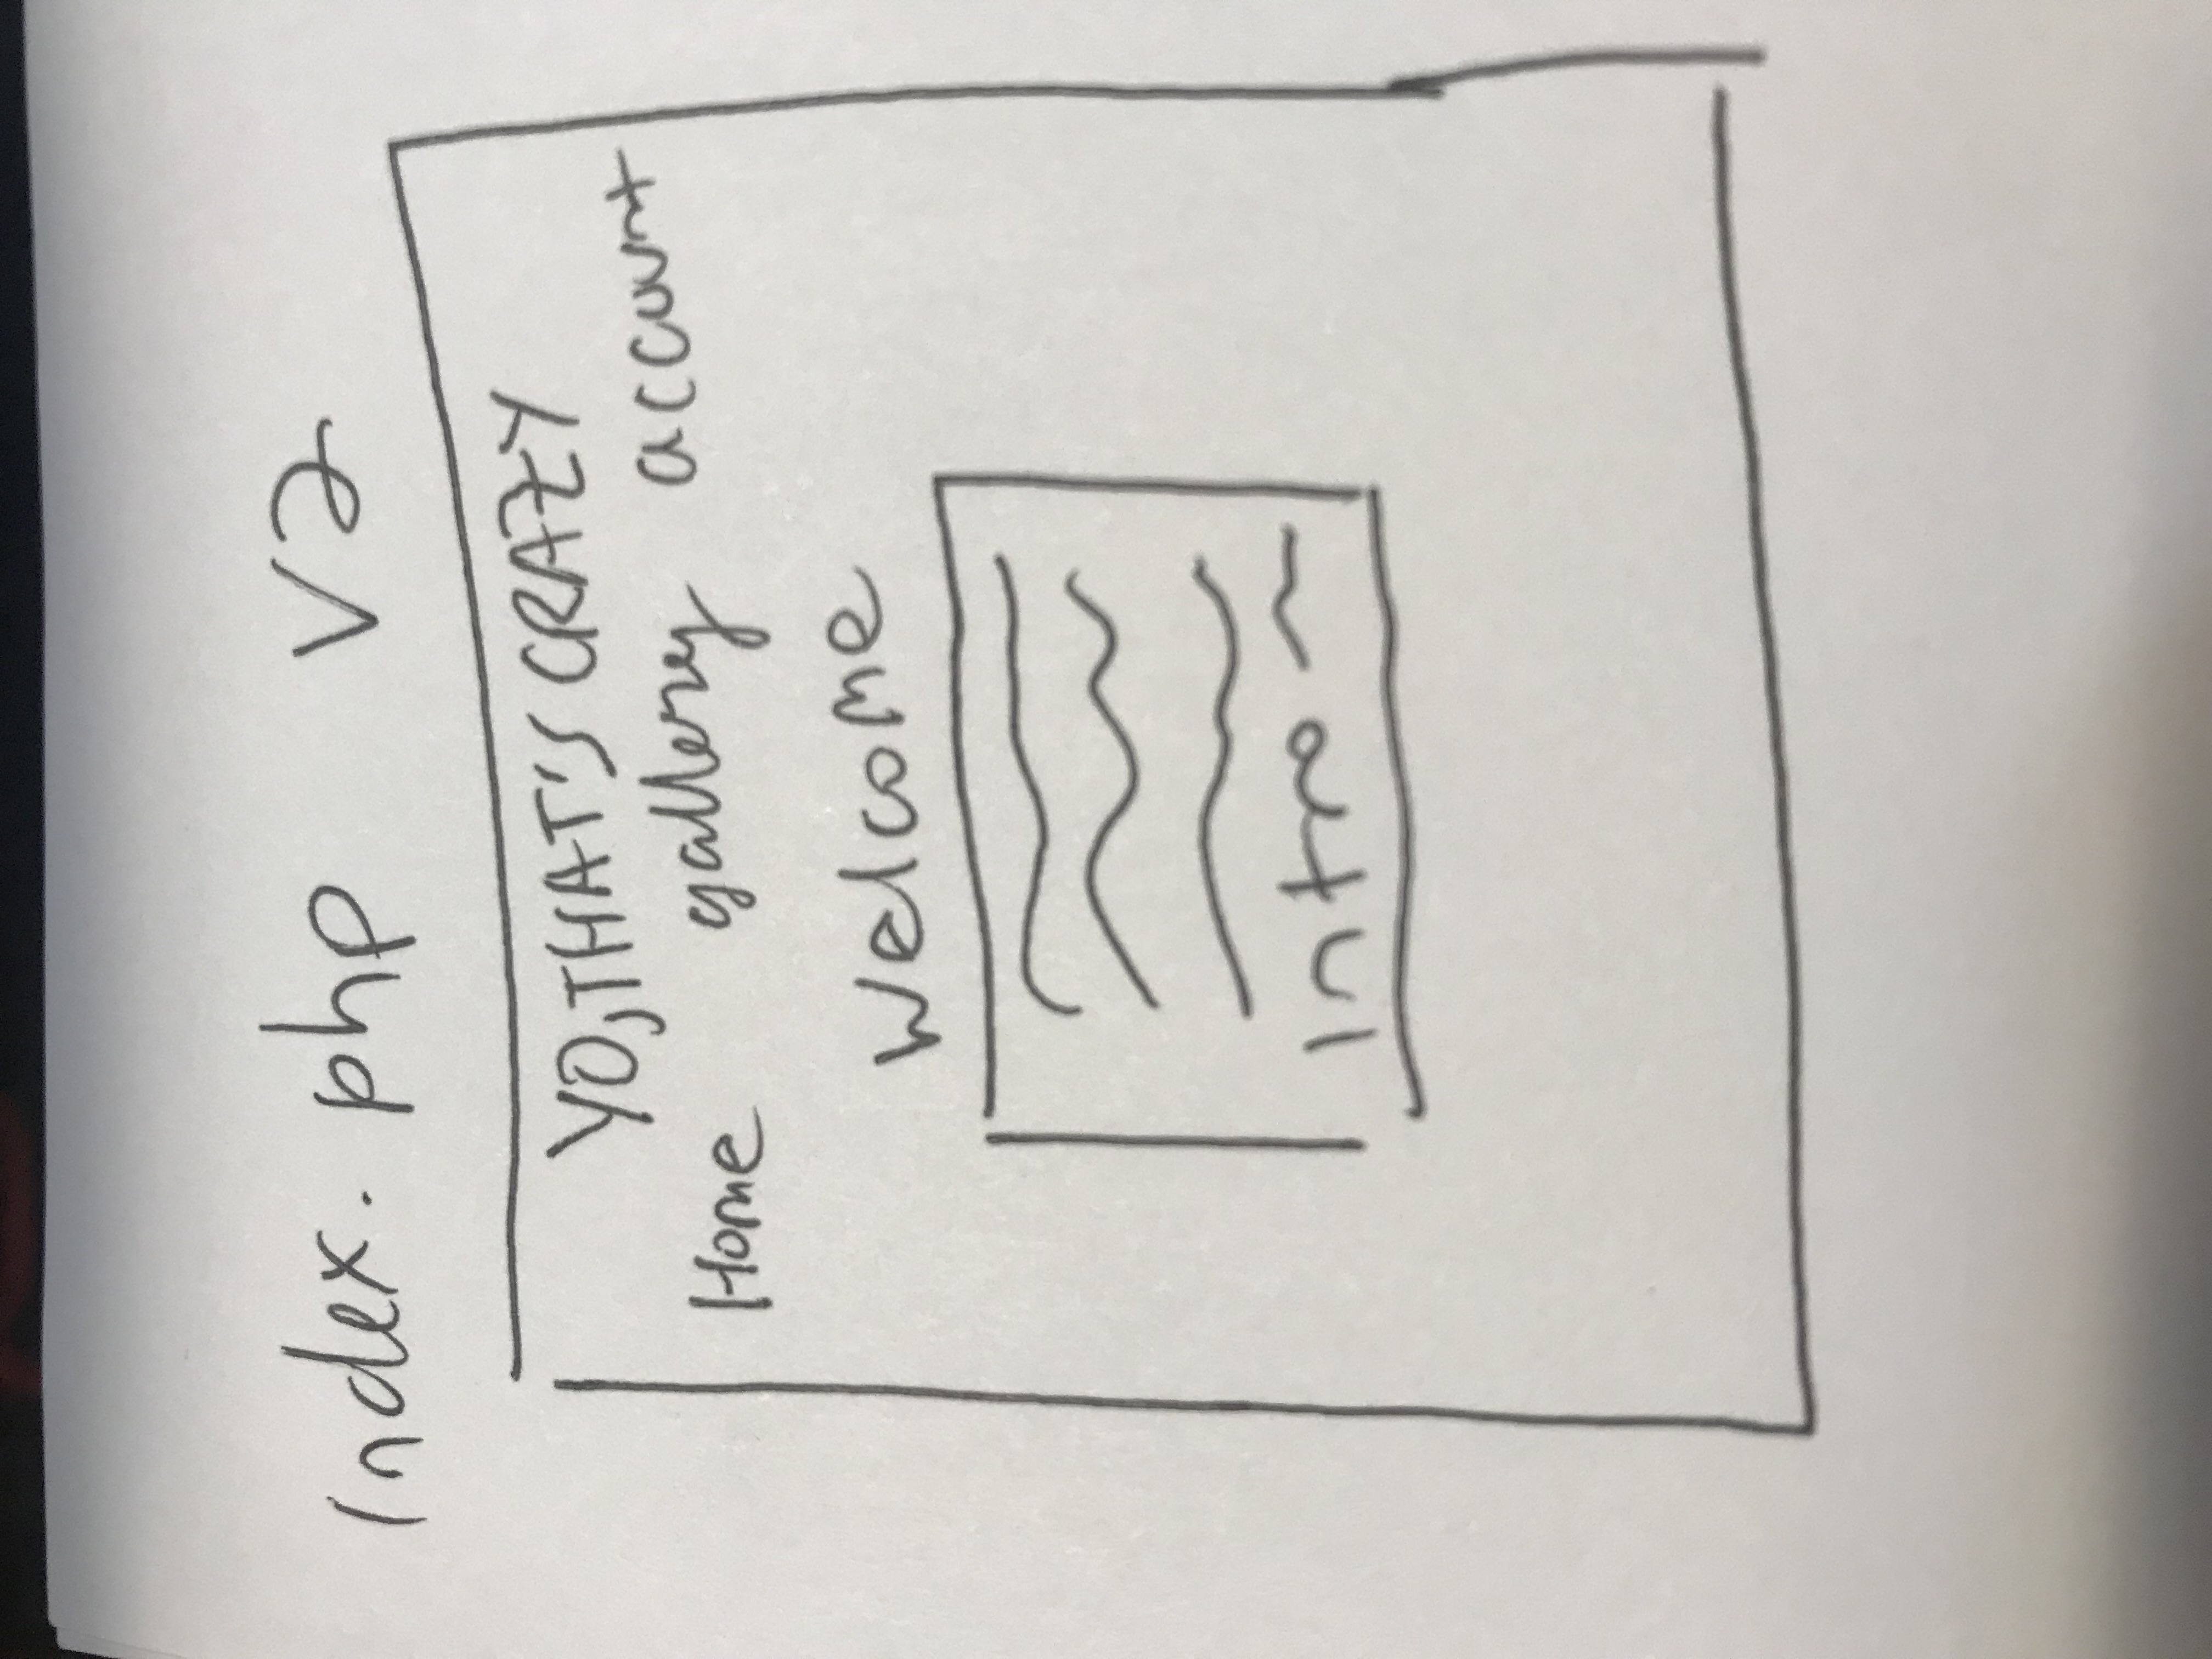 Index.php V2
YO, THAT'S CRAZY
Home gallery account
Welcome
Intro